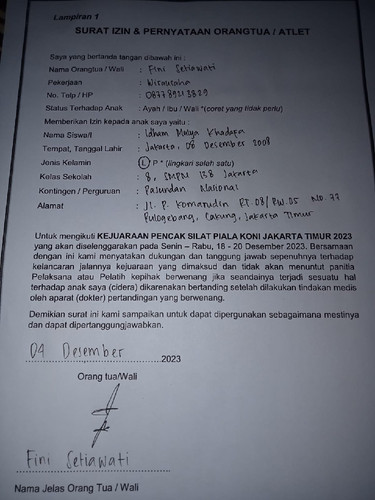 Lampiran 1
SURAT IZIN & PERNYATAAN ORANGTUA / ATLET
Saya yang bertanda tangan dibawah ini :
Nama Orangtua / Wali : Fini Setiawati
Pekerjaan : Wirausaha
No. Telp / HP : 0877 8921 3829
Status Terhadap Anak : Ayah / Ibu / Wali *(coret yang tidak perlu)
Memberikan Izin kepada anak saya yaitu :
Nama Siswa/I : Idham Mulya Khadafa
Tempat, Tanggal Lahir : Jakarta, 08 Desember 2008
Jenis Kelamin : L / P * (lingkari salah satu)
Kelas Sekolah : 8, SMPN 138 Jakarta
Kontingen / Perguruan : Pajundan Nasional
Alamat : Jl. P. Komarudin RT.08/RW.05 NO 77
Pulogebang, Cakung, Jakarta Timur
Untuk mengikuti KEJUARAAN PENCAK SILAT PIALA KONI JAKARTA TIMUR 2023
yang akan diselenggarakan pada Senin – Rabu, 18 - 20 Desember 2023. Bersamaan
dengan ini kami menyatakan dukungan dan tanggung jawab sepenuhnya terhadap
kelancaran jalannya kejuaraan yang dimaksud dan tidak akan menuntut panitia
Pelaksana atau Pelatih kepihak berwenang jika seandainya terjadi sesuatu hal
terhadap anak saya (cidera) dikarenakan bertanding setelah dilakukan tindakan medis
oleh aparat (dokter) pertandingan yang berwenang.
Demikian surat ini kami sampaikan untuk dapat dipergunakan sebagaimana mestinya
dan dapat dipertanggungjawabkan.
04 Desember 2023
Orang tua/Wali
Fini Setiawati
Nama Jelas Orang Tua / Wali